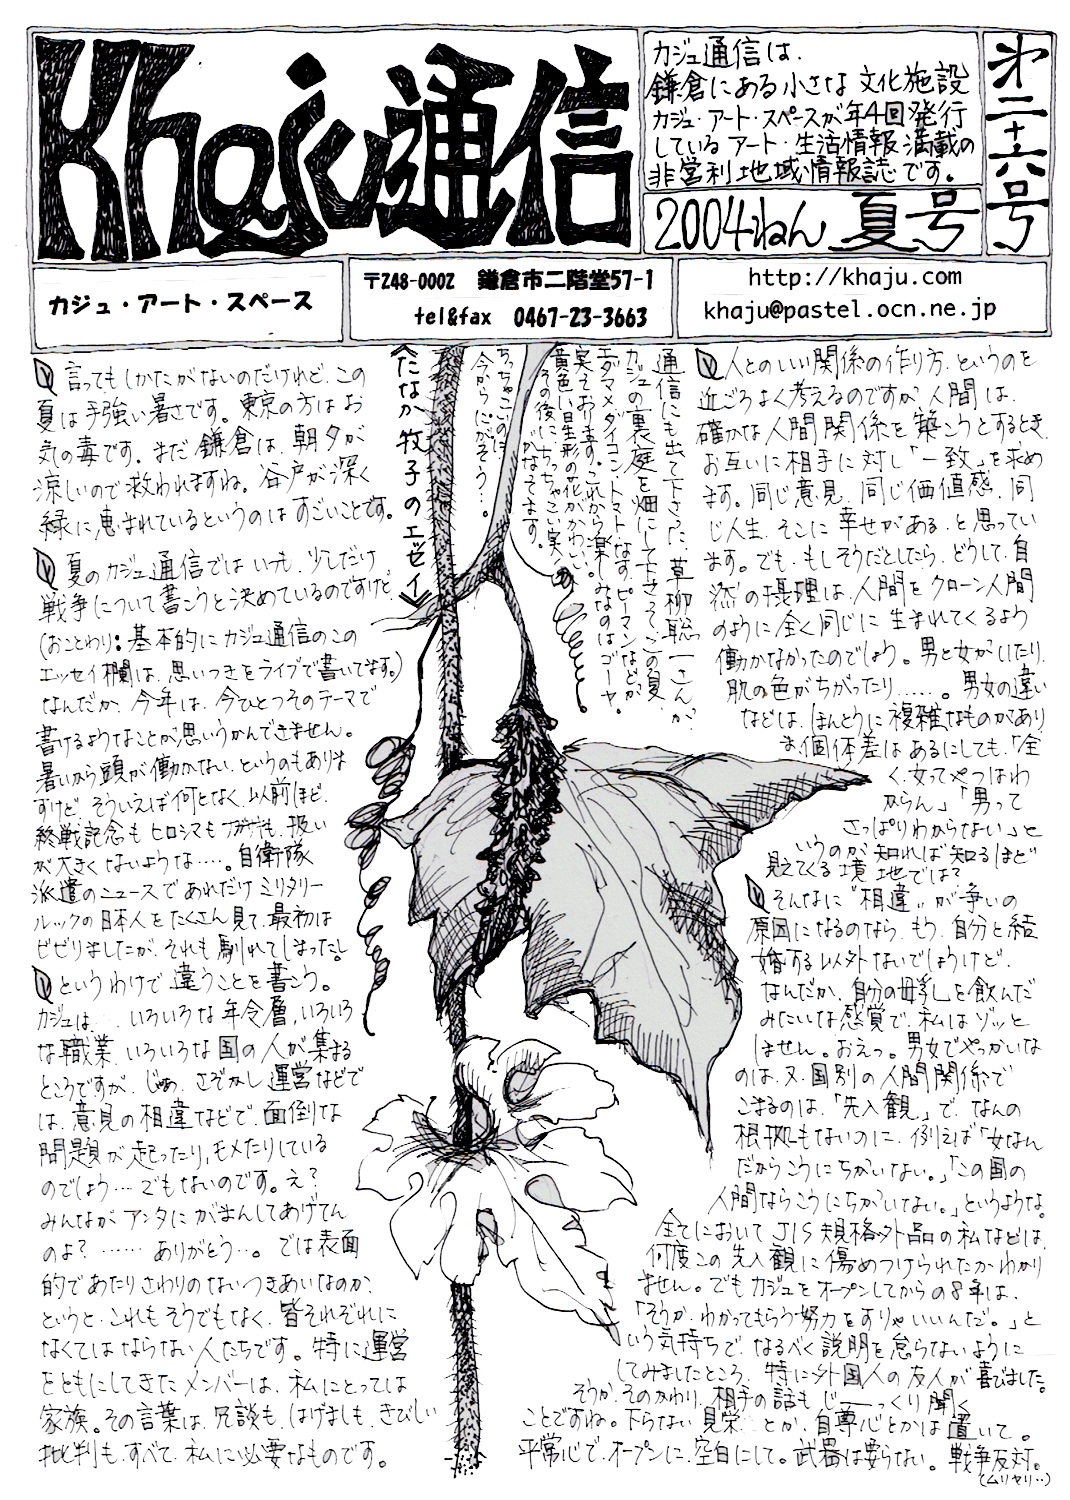 Khaju通信
カジュ通信は、
鎌倉にある小さな文化施設
カジュ・アート・スペースが年4回発行
しているアート・生活情報満載の
非営利地域情報誌です。
2004ねん 夏号
第二十六号
カジュ・アート・スペース
〒248-0002 鎌倉市二階堂57-1
tel&fax 0467-23-3663
http://khaju.com
khaju@pastel.ocn.ne.jp
《たなか牧子のエッセイ》
言ってもしかたがないのだけれど、この
夏は手強い暑さです。東京の方はお
気の毒です。まだ鎌倉は、朝夕が
涼しいので救われますね。谷戸が深く
緑に恵まれているというのはすごいことです。
夏のカジュ通信ではいつも、少しだけ
戦争について書こうと決めているのですけど、
(おことわり：基本的にカジュ通信のこの
エッセイ欄は、思いつきをライブで書いてます。)
なんだか、今年は、今ひとつそのテーマで
書けるようなことが思いうかんできません。
暑いから頭が働かない、というのもありま
すけど、そういえば何となく、以前ほど、
終戦記念もヒロシマもナガサキも、扱い
が大きくないような‥‥。自衛隊
派遣のニュースであれだけミリタリー
ルックの日本人をたくさん見て、最初は
ビビりましたが、それも馴れてしまったし。
というわけで違うことを書こう。
カジュは、いろいろな年令層、いろいろ
な職業、いろいろな国の人が集まる
ところですが、じゃあ、さぞかし運営などで
は、意見の相違などで、面倒な
問題が起ったり、モメたりしている
のでしょう…でもないのです。え？
みんながアンタにがまんしてあげてん
のよ？‥‥‥ありがとう‥。では表面
的であたりさわりのないつきあいなのか、
というと、これもそうでもなく、皆それぞれに、
なくてはならない人たちです。特に運営
をともにしてきたメンバーは、私にとっては
家族。その言葉は、冗談も、はげましも、きびしい
批判も、すべて、私に必要なものです。
通信にも出て下さった、草柳聡一さんが、
カジュの裏庭を畑にして下さって、この夏、
エダマメ、ダイコン、トマト、なす、ピーマンなどが
実っております。これから楽しみなのはゴーヤ。
黄色い星形の花がかわいい。
その後に、ちっちゃこい実
がなってます。
ちっちゃこいのに
今からにがそう‥。
人とのいい関係の作り方、というのを
近ごろよく考えるのですが、人間は、
確かな人間関係を築こうとするとき、
お互いに相手に対し「一致」を求め
ます。同じ意見、同じ価値感、同
じ人生、そこに幸せがある、と思ってい
ます。でも、もしそうだとしたら、どうして、自
然の摂理は、人間をクローン人間
のように全く同じに生まれてくるよう
働かなかったのでしょう。男と女がいたり、
肌の色がちがったり‥‥‥。男女の違い
などは、ほんとうに複雑なものがあり
ま、個体差はあるにしても、「全
く、女ってやつはわ
からん」「男って
さっぱりわからない」と
いうのが、知れば知るほど
見えてくる境地では？
そんなに〝相違〟が争いの
原因になるのなら、もう、自分と結
婚する以外ないでしょうけど、
なんだか、自分の母乳を飲んだ
みたいな感覚で、私はゾッと
しません。おえっ。男女でやっかいな
のは、又、国別の人間関係で
こまるのは、「先入観」で、なんの
根拠もないのに、例えば「女なん
だからこうにちがいない。」「この国の
人間ならこうにちがいない。」というような。
全てにおいてJIS規格外品の私などは、
何度この先入観に傷めつけられたかわかり
ません。でもカジュをオープンしてからの8年は、
「そうか、わかってもらう努力をすりゃいいんだ。」と
いう気持ちで、なるべく説明を怠らないように
してみましたところ、特に外国人の友人が喜びました。
そうか、そのかわり、相手の話もじーっくり聞く
ことですね。下らない見栄とか、自尊心とかは置いて。
平常心で、オープンに、空白にして。武器は要らない。戦争反対。
(ムリヤリ‥)